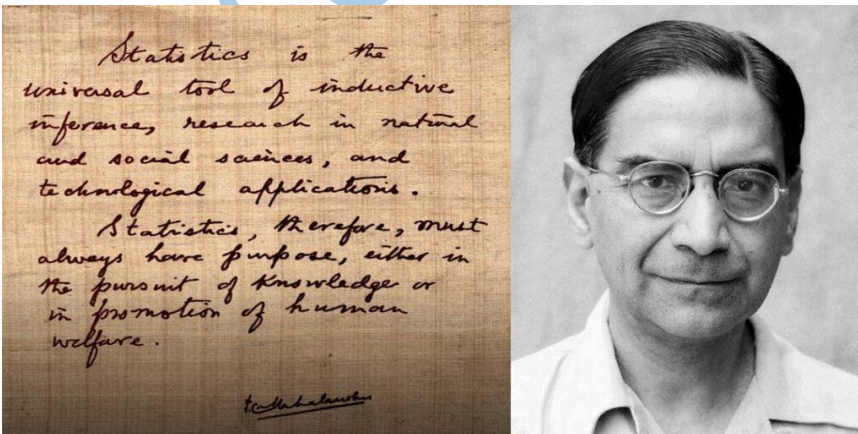 Statistics is the
universal tool of inductive
inference, research in natural
and social sciences, and
technological applications.
Statistics, therefore, must
always have purpose, either in
the pursuit of knowledge or
in promotion of human
welfare.
PCMahalanobis